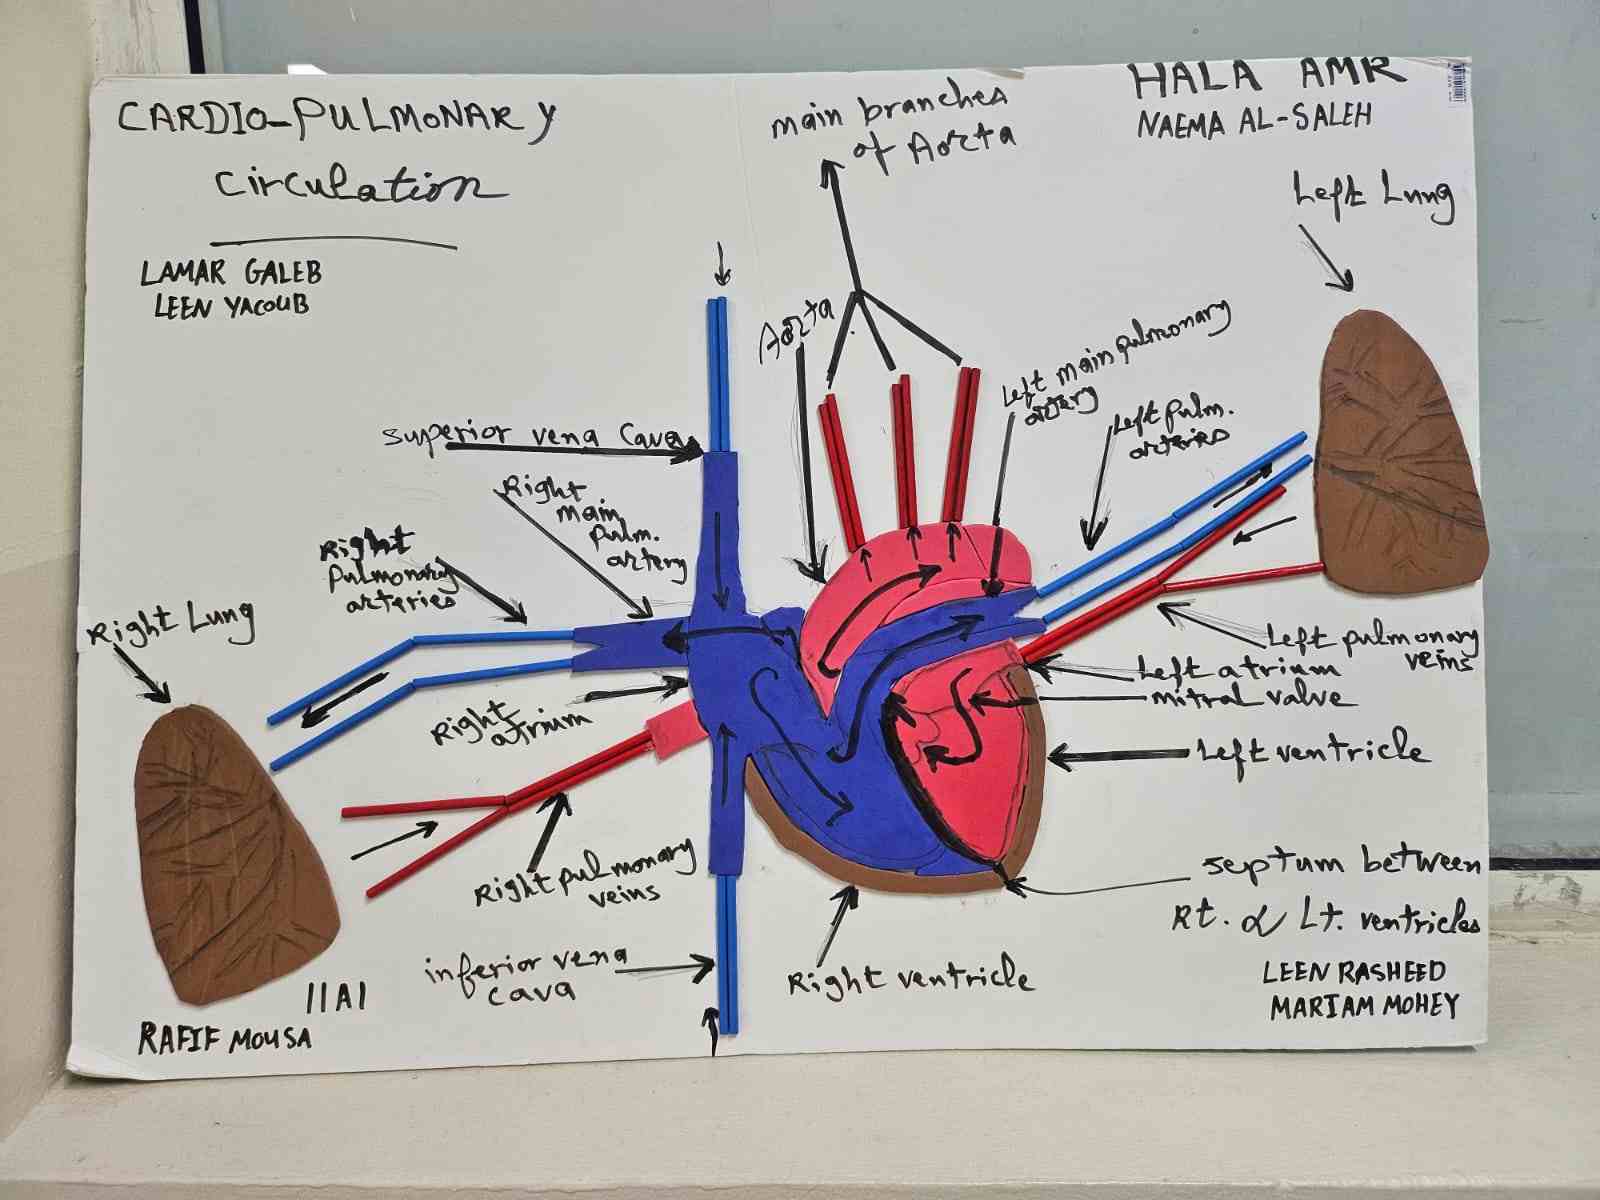 CARDIO-PULMONARY
Circulation
LAMAR GALEB
LEEN YACOUB
main branches
of Aorta
HALA AMR
NAEMA AL-SALEH
Left Lung
Aorta
Left main pulmonary
artery
Left pulm.
arteries
Superior vena Cava
Right
main
pulm.
artery
Right
pulmonary
arteries
Right Lung
Right
atrium
Left pulmonary
veins
Left atrium
mitral valve
Left ventricle
Right pulmonary
veins
septum between
Rt. & Lt. ventricles
inferior vena
cava
Right ventricle
LEEN RASHEED
MARIAM MOHEY
11A1
RAFIF MOUSA